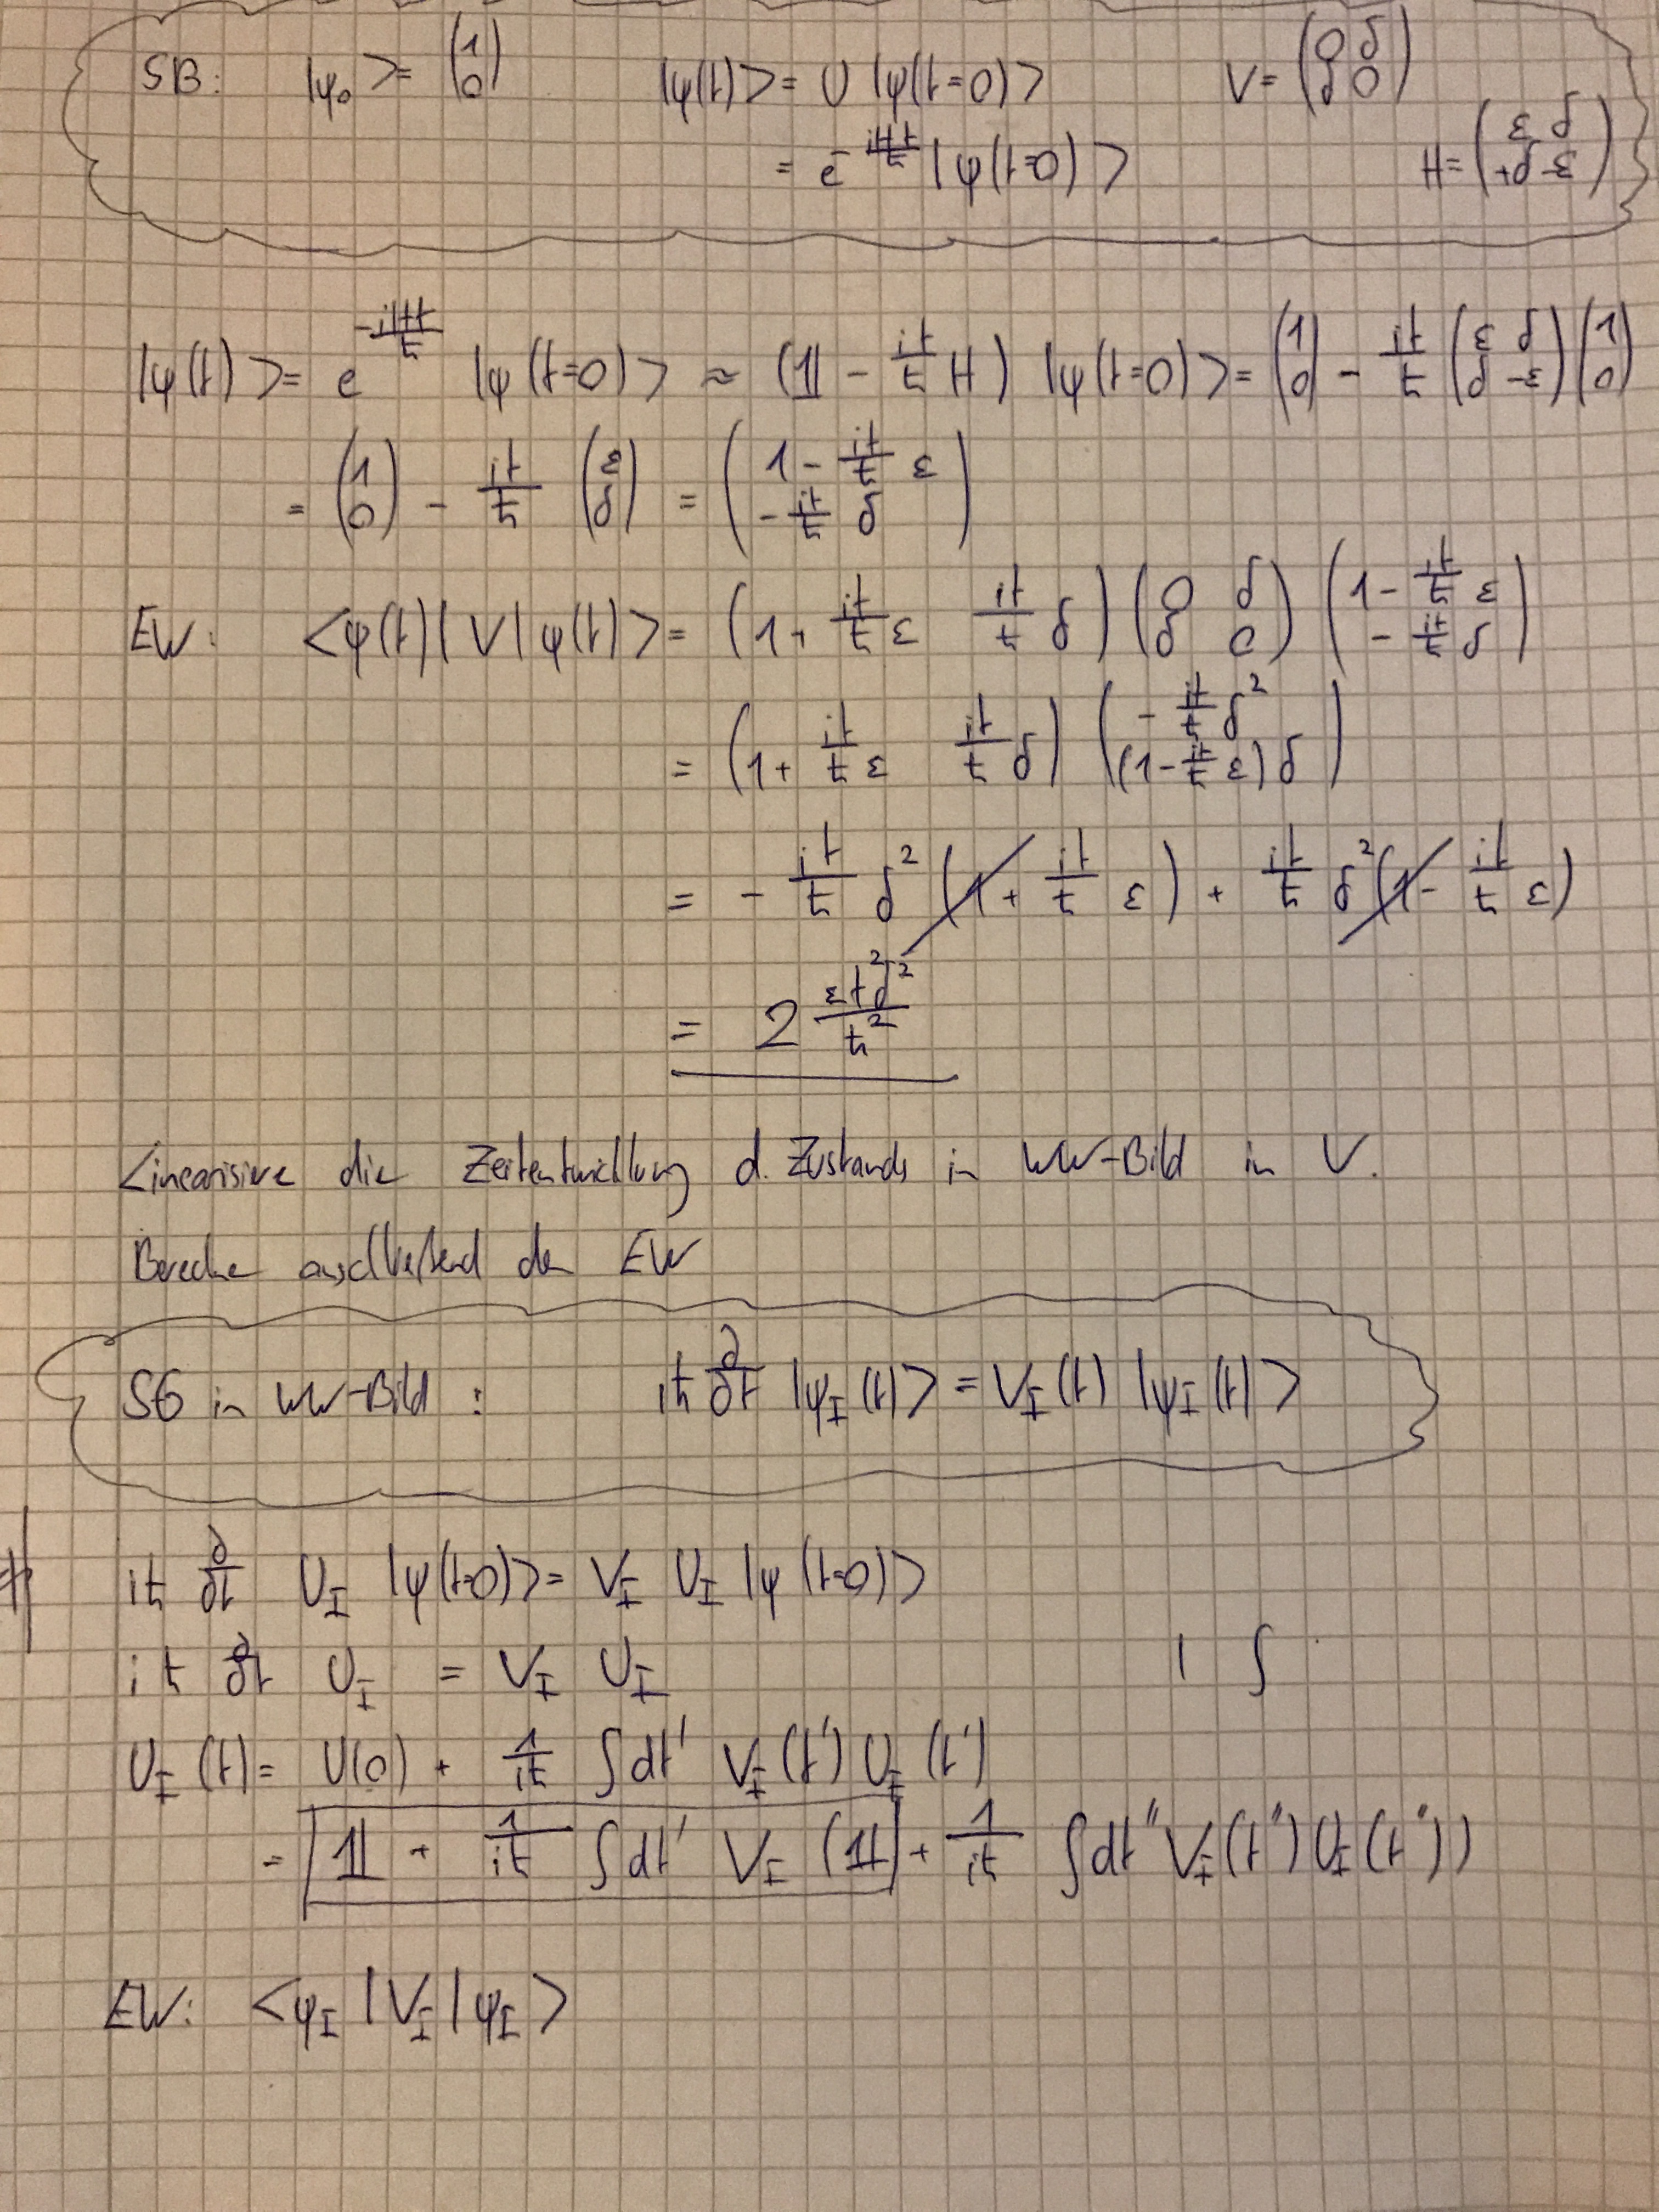 SB: |ψ₀> = (1 0) |ψ(t)> = U |ψ(t=0)> V = (0 δ δ 0)
= e^(-iHt/ħ) |ψ(t=0)> H = (ε δ +δ -ε)
|ψ(t)> = e^(-iHt/ħ) |ψ(t=0)> ≈ (𝟙 - it/ħ H) |ψ(t=0)> = (1 0) - it/ħ (ε δ δ -ε)(1 0)
= (1 0) - it/ħ (ε δ) = (1 - it/ħ ε - it/ħ δ)
EW: <ψ(t)|V|ψ(t)> = (1 + it/ħ ε it/ħ δ)(0 δ δ 0)(1 - it/ħ ε - it/ħ δ)
= (1 + it/ħ ε it/ħ δ)(- it/ħ δ² (1 - it/ħ ε)δ)
= - it/ħ δ² (1 + it/ħ ε) + it/ħ δ² (1 - it/ħ ε)
= 2 εt²δ²/ħ²
Linearisire die Zeitentwicklung d. Zustands in WW-Bild in V.
Bereche anschließend den EW
SG in WW-Bild : iħ ∂/∂t |ψ_I(t)> = V_I(t) |ψ_I(t)>
iħ ∂/∂t U_I |ψ(t=0)> = V_I U_I |ψ(t=0)>
iħ ∂/∂t U_I = V_I U_I | ∫
U_I(t) = U(0) + 1/iħ ∫dt' V_I(t') U_I(t')
= 𝟙 + 1/iħ ∫dt' V_I (𝟙 + 1/iħ ∫dt'' V_I(t'') U_I(t''))
EW: <ψ_I|V_I|ψ_I>